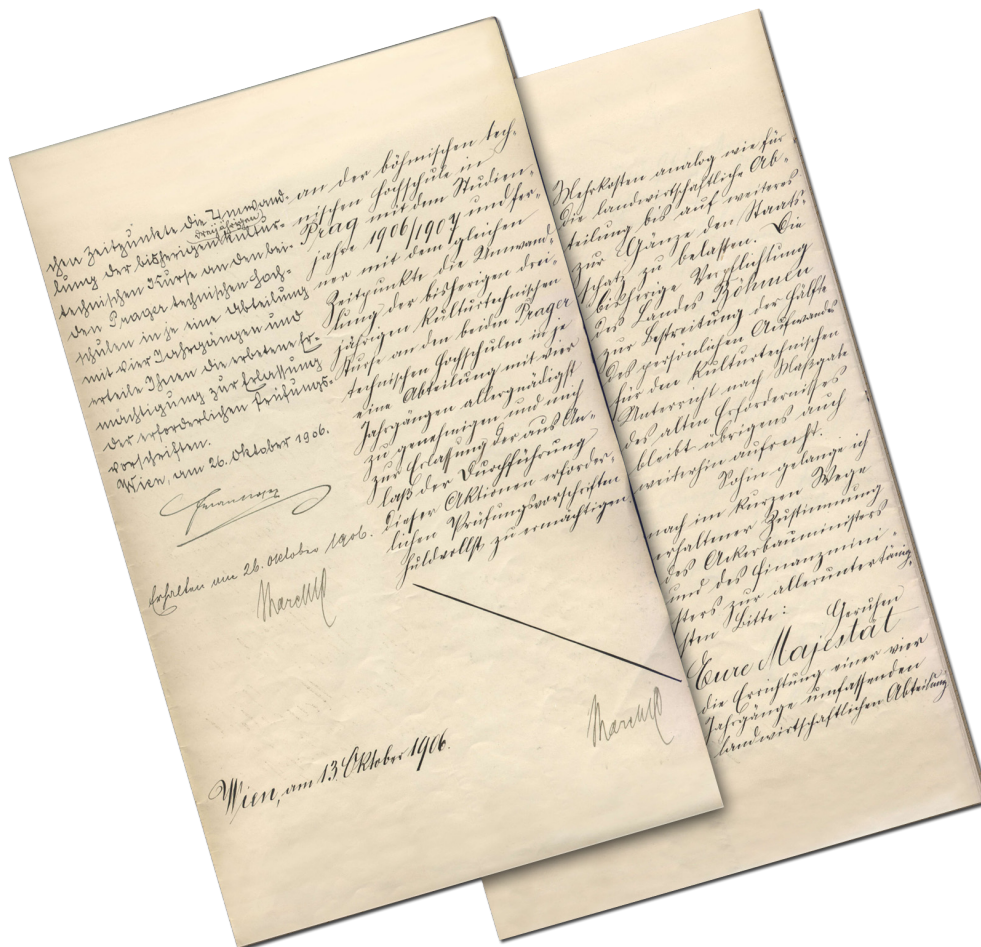 chen Zeitpunkte die Umwand-
lung der bisherigen Kultur-
dreijährigen
technischen Kurse an den bei-
den Prager technischen Hoch-
schulen in je eine Abteilung
mit vier Jahrgängen und
erteile Ihnen die erbetene Er-
mächtigung zur Erlassung
der erforderlichen Prüfungs-
vorschriften.
Wien, am 26. Oktober 1906.
Erhalten am 26. Oktober 1906.
Marchet
Wien, am 13. Oktober 1906.
an der böhmischen tech-
nischen Hochschule in
Prag mit dem Studien-
jahre 1906/1907 und fer-
ner mit dem gleichen
Zeitpunkte die Umwand-
lung der bisherigen drei-
jährigen kulturtechnischen
Kurse an den beiden Prager
technischen Hochschulen in je
eine Abteilung mit vier
Jahrgängen allergnädigst
zu genehmigen und mich
zur Erlassung der aus An-
laß der Durchführung
dieser Aktionen erforder-
lichen Prüfungsvorschriften
huldvollst zu ermächtigen
Marchet
Mehrkosten analog wie für
die landwirtschaftliche Ab-
teilung bis auf weiteres
zur Gänze den Staats-
schatz zu belasten. Die
bisherige Verpflichtung
des Landes Böhmen
zur Bestreitung der Hälfte
des persönlichen Aufwands
für den kulturtechnischen
Unterricht nach Maßgabe
des alten Erfordernisses
bleibt übrigens auch
weiterhin aufrecht.
Sohin gelange ich
nach im kurzen Wege
erhaltener Zustimmung
des Ackerbauministers
und des Finanzmini-
sters zur alleruntertänig-
sten Bitte:
Geruhen
Eure Majestät
die Errichtung einer vier
Jahrgänge umfassenden
landwirtschaftlichen Abteilung